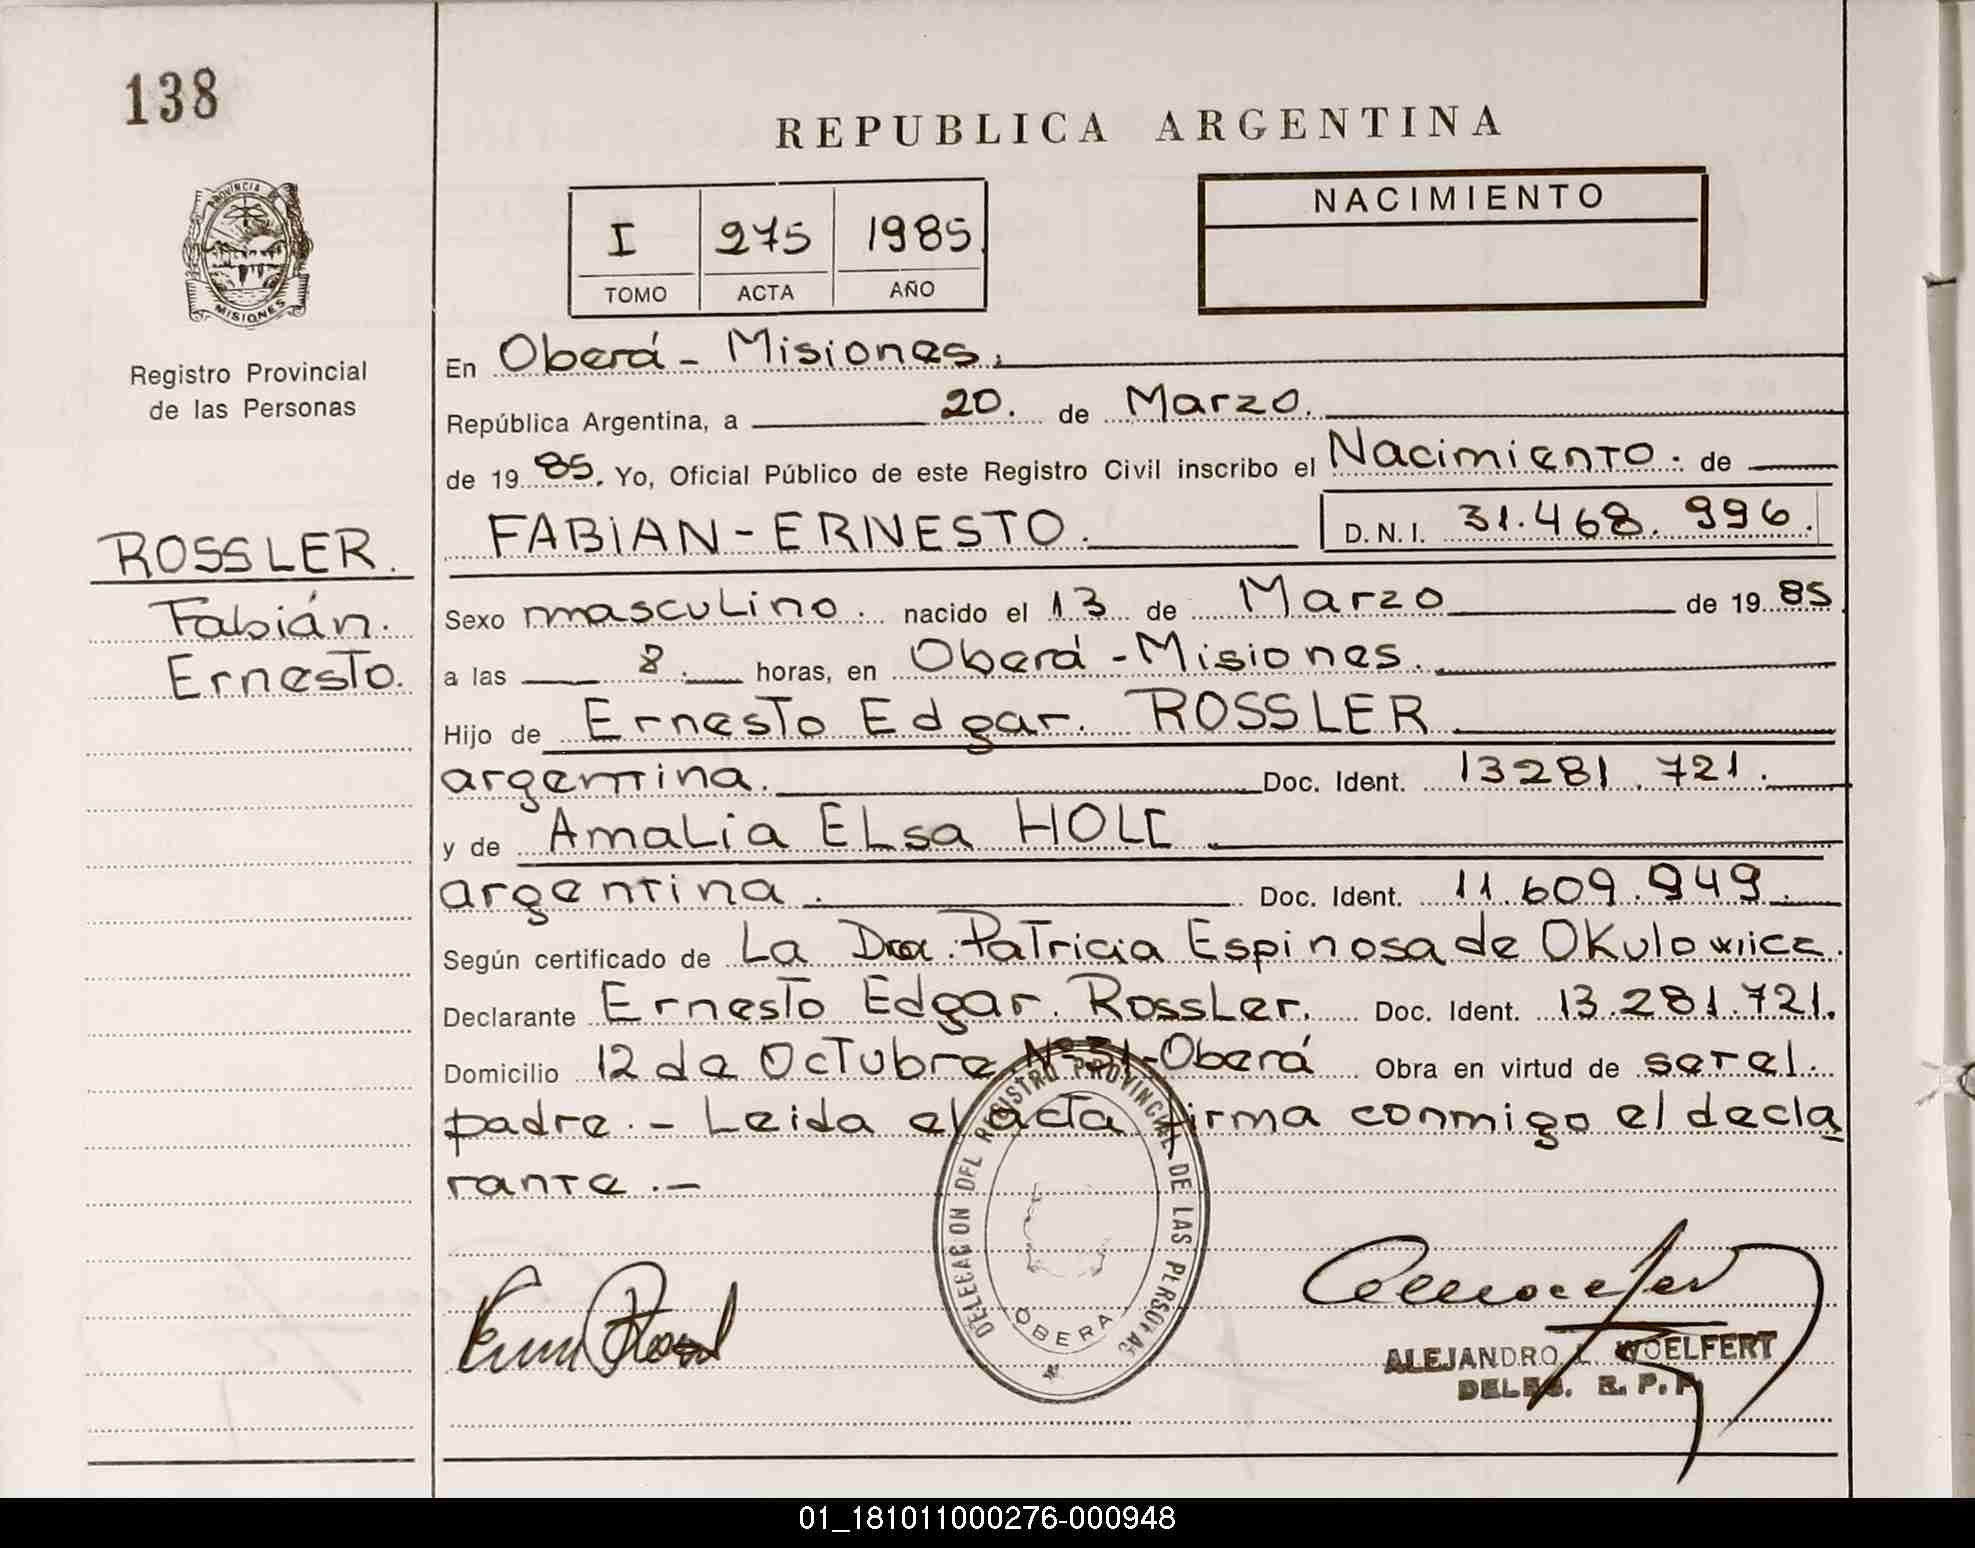 138
REPUBLICA ARGENTINA
PROVINCIA DE
MISIONES
I 275 1985
TOMO ACTA AÑO
NACIMIENTO
Registro Provincial
de las Personas
ROSSLER.
Fabián.
Ernesto.
En Oberá - Misiones.
República Argentina, a 20. de Marzo.
de 19 85. Yo, Oficial Público de este Registro Civil inscribo el Nacimiento. de
FABIAN - ERNESTO. D.N.I. 31.468.996.
Sexo masculino. nacido el 13 de Marzo de 19 85
a las 8. horas, en Oberá - Misiones.
Hijo de Ernesto Edgar. ROSSLER
argentina. Doc. Ident. 13281.721.
y de Amalia Elsa HOLC
argentina. Doc. Ident. 11.609.949.
Según certificado de La Dra. Patricia Espinosa de Okulowicz.
Declarante Ernesto Edgar. Rossler. Doc. Ident. 13.281.721.
Domicilio 12 de Octubre Nº 31 - Oberá Obra en virtud de ser el.
padre. - Leida el acta firma conmigo el decla
rante. -
DELEGACION DEL REGISTRO PROVINCIAL DE LAS PERSONAS
OBERA
ALEJANDRO L. WOELFERT
DELEG. R. P. P.
01_181011000276-000948